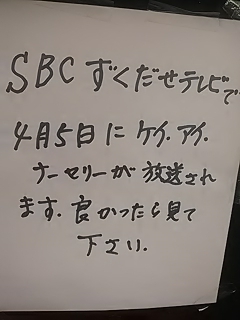 SBCずくだせテレビで
4月5日にケイ.アイ.
ナーセリーが放送され
ます.良かったら見て
下さい.